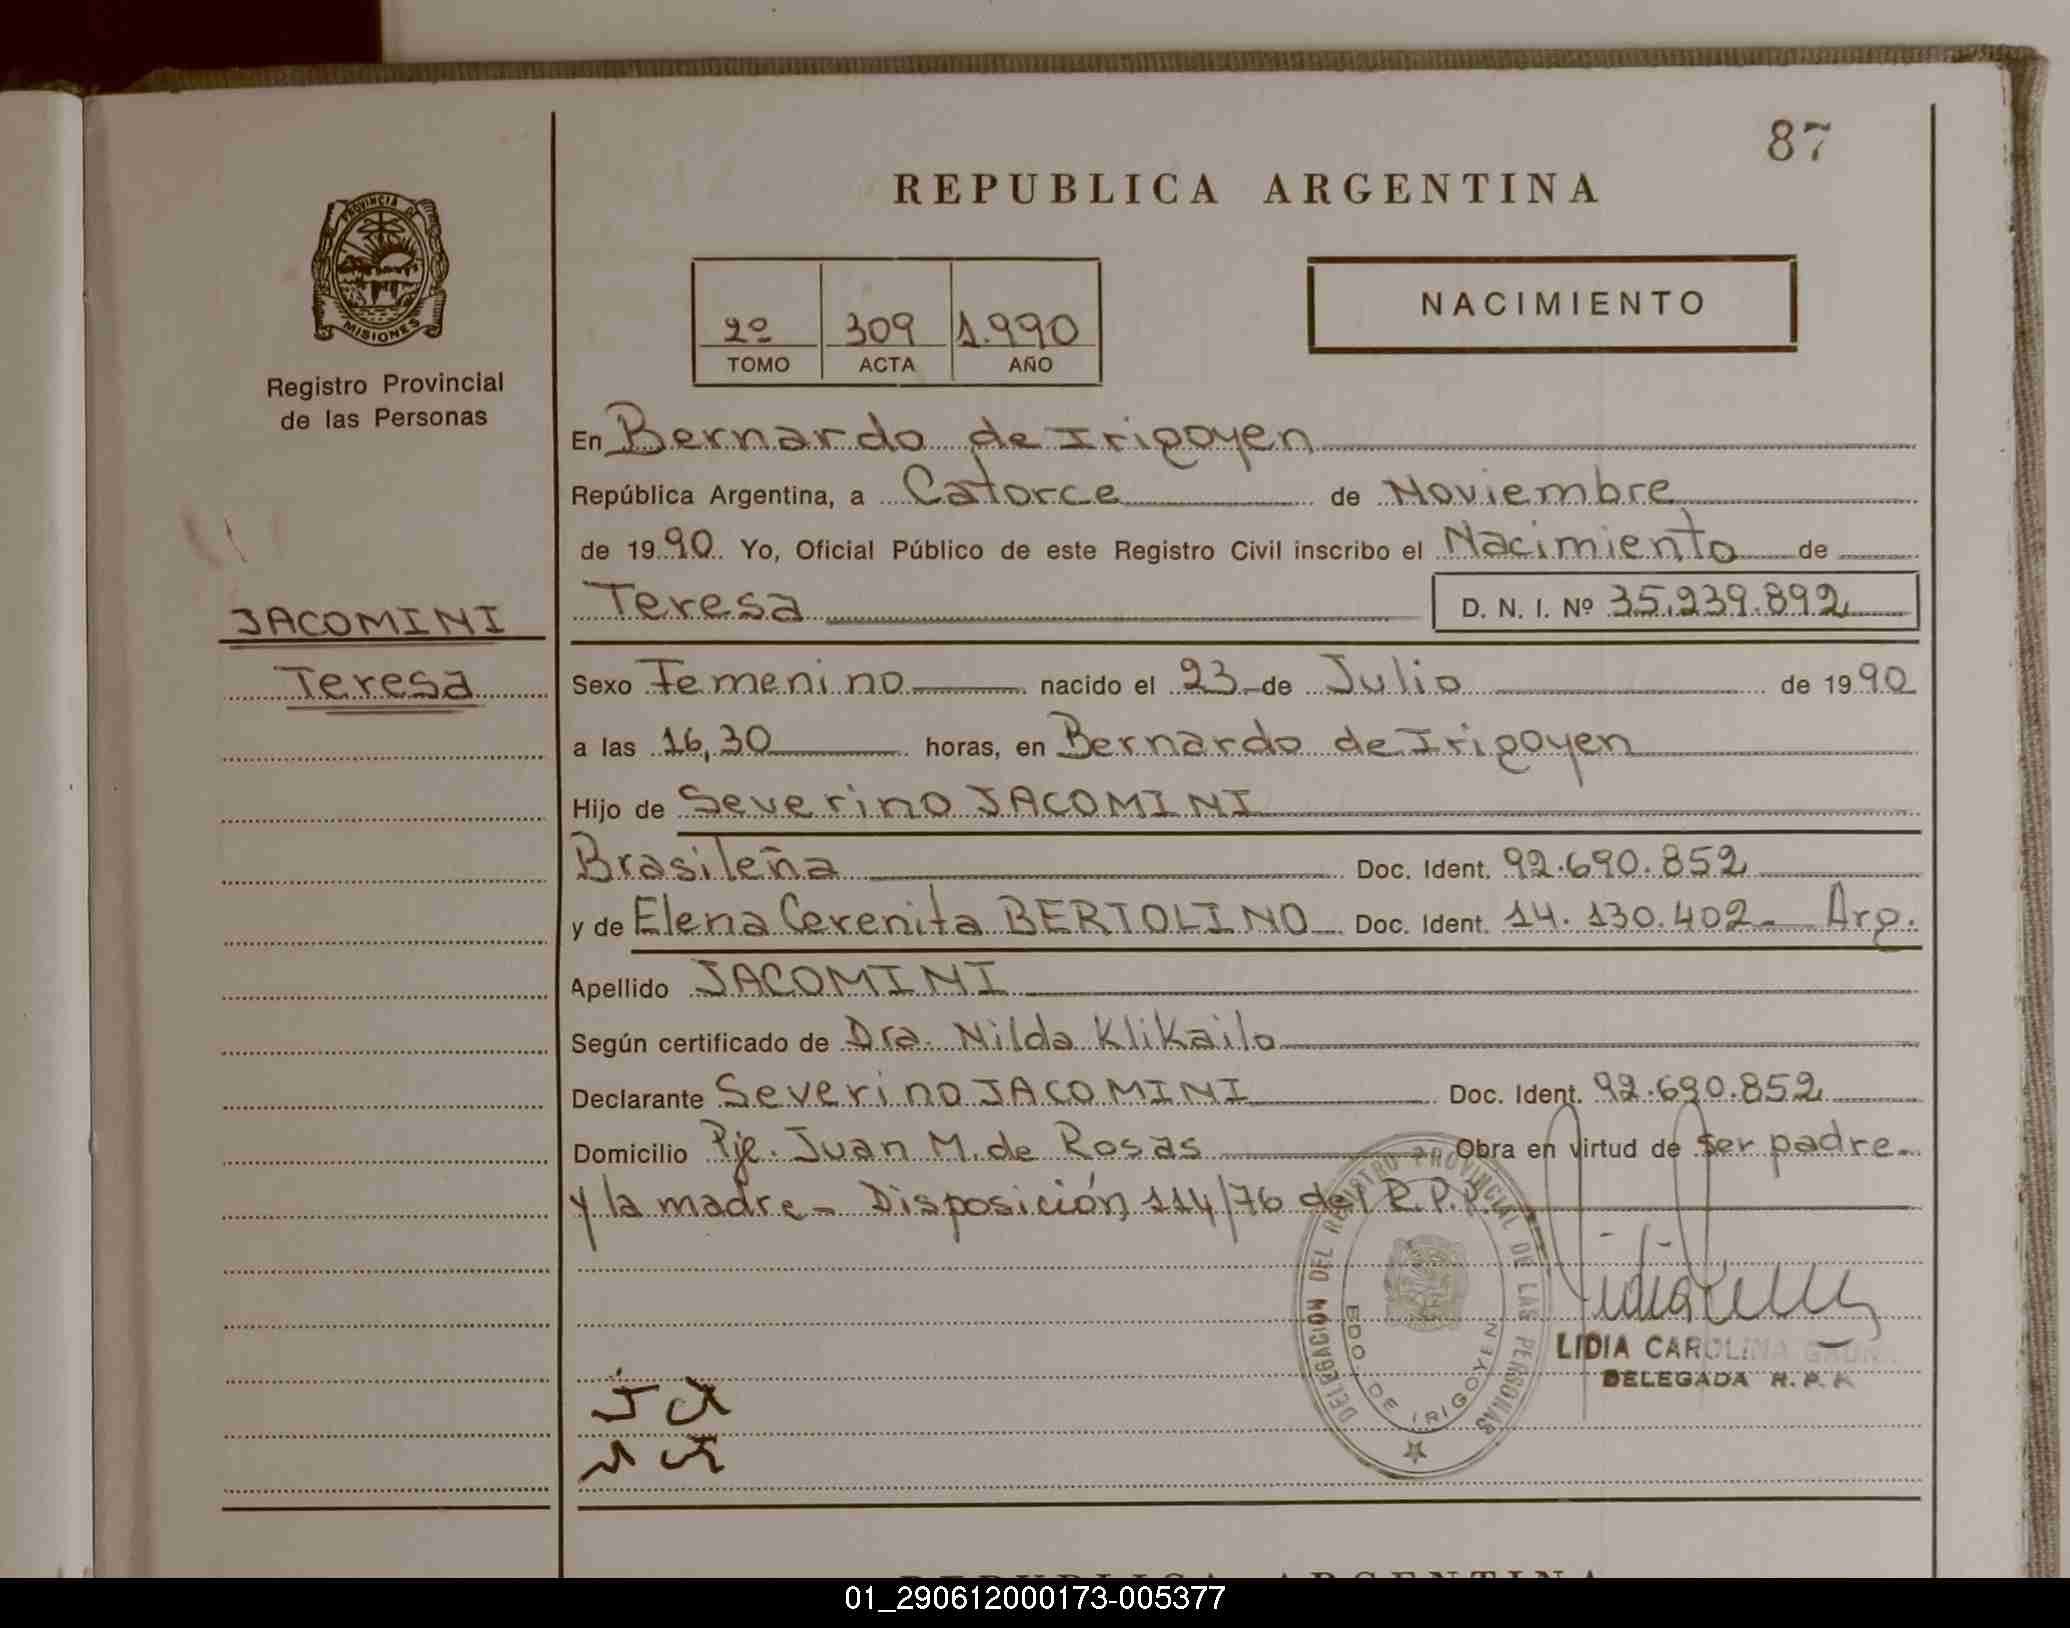 87
REPUBLICA ARGENTINA
PROVINCIA DE
MISIONES
Registro Provincial
de las Personas
2º 309 1.990
TOMO ACTA AÑO
NACIMIENTO
En Bernardo de Irigoyen
República Argentina, a Catorce de Noviembre
de 1990. Yo, Oficial Público de este Registro Civil inscribo el Nacimiento de
Teresa D. N. I. Nº 35.239.892
JACOMINI
Teresa
Sexo Femenino nacido el 23 de Julio de 1990
a las 16,30 horas, en Bernardo de Irigoyen
Hijo de Severino JACOMINI
Brasileña Doc. Ident. 92.690.852
y de Elena Cerenita BERTOLINO Doc. Ident. 14.130.402- Arg.
Apellido JACOMINI
Según certificado de Dra. Nilda Klikailo
Declarante Severino JACOMINI Doc. Ident. 92.690.852
Domicilio Pje. Juan M. de Rosas Obra en virtud de ser padre-
y la madre- Disposición 114/76 del R.P.P.
DELEGACION DEL REGISTRO PROVINCIAL DE LAS PERSONAS
BDO. DE IRIGOYEN
LIDIA CAROLINA
DELEGADA R. P. P.
REPUBLICA ARGENTINA
01_290612000173-005377